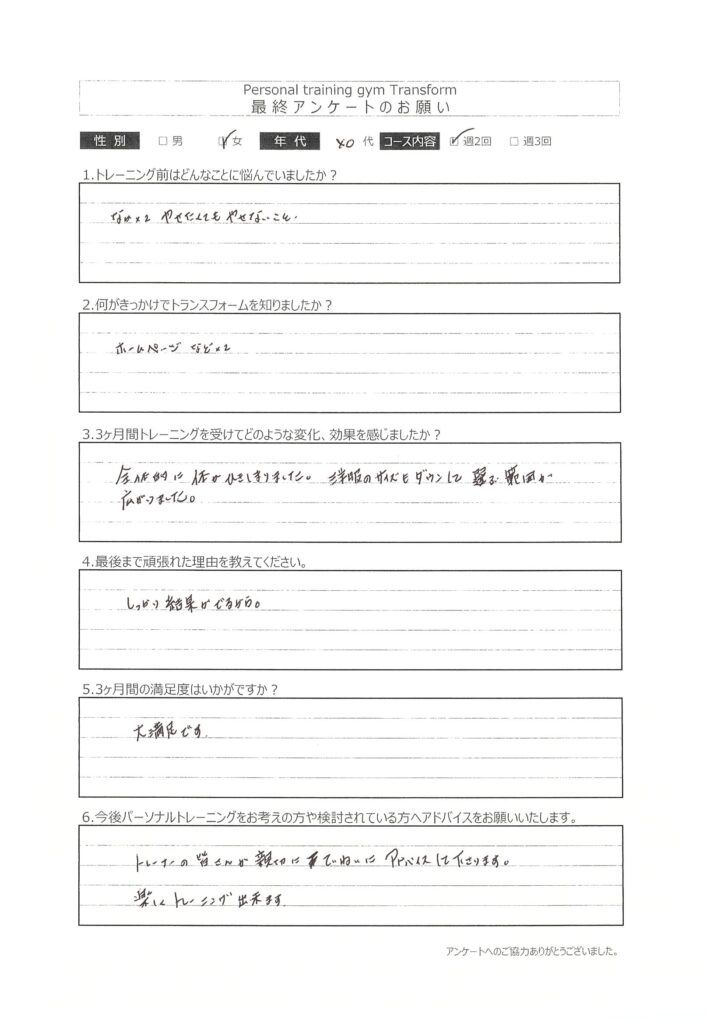 Personal training gym Transform
最終アンケートのお願い
性別 □男 ☑女 年代 40代 コース内容 ☑週2回 □週3回
1.トレーニング前はどんなことに悩んでいましたか？
なかなか やせたくてもやせないこと。
2.何がきっかけでトランスフォームを知りましたか？
ホームページ
3.3ヶ月間トレーニングを受けてどのような変化、効果を感じましたか？
全体的に 体がひきしまりました。 洋服のサイズもダウンして 選ぶ 範囲が
広がりました。
4.最後まで頑張れた理由を教えてください。
しっかり結果がでるから。
5.3ヶ月間の満足度はいかがですか？
大満足です。
6.今後パーソナルトレーニングをお考えの方や検討されている方へアドバイスをお願いいたします。
トレーナーの皆さんが親切にていねいにアドバイスして下さります。
楽しくトレーニング出来ます。
アンケートへのご協力ありがとうございました。